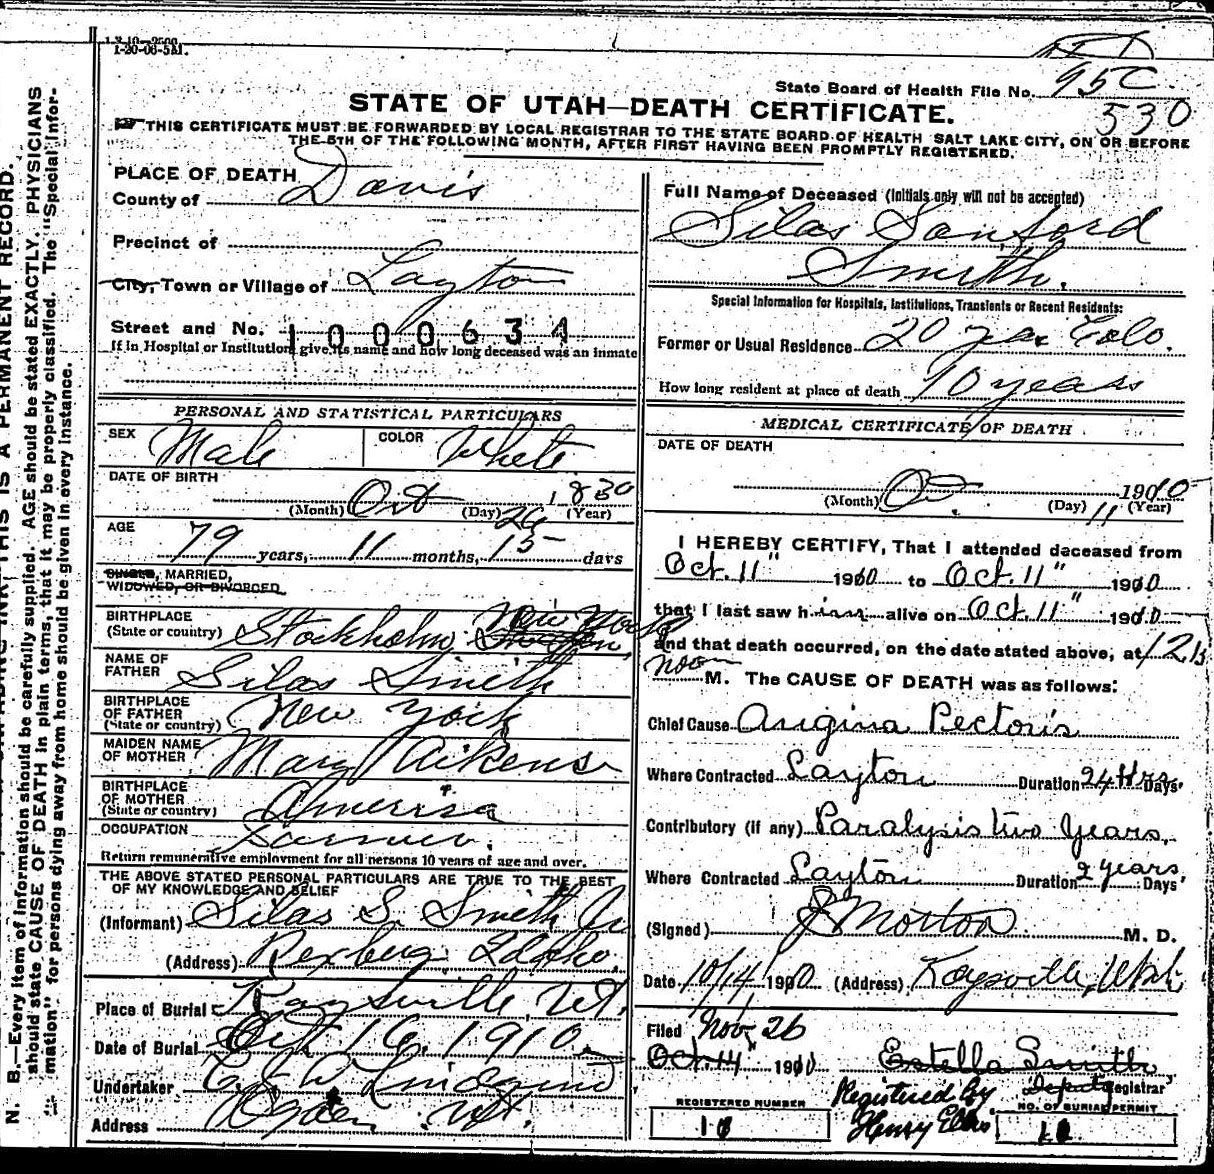 1-20-06-5M.
State Board of Health File No. 95C
530
STATE OF UTAH—DEATH CERTIFICATE.
THIS CERTIFICATE MUST BE FORWARDED BY LOCAL REGISTRAR TO THE STATE BOARD OF HEALTH SALT LAKE CITY, ON OR BEFORE
THE 5TH OF THE FOLLOWING MONTH, AFTER FIRST HAVING BEEN PROMPTLY REGISTERED.
N. B.—Every item of information should be carefully supplied. AGE should be stated EXACTLY. PHYSICIANS
should state CAUSE OF DEATH in plain terms, that it may be properly classified. The "Special Infor-
mation" for persons dying away from home should be given in every instance.
THIS IS A PERMANENT RECORD.
PLACE OF DEATH
County of Davis
Precinct of
City, Town or Village of Layton
Street and No.
1000634
If in Hospital or Institution, give its name and how long deceased was an inmate
PERSONAL AND STATISTICAL PARTICULARS
SEX Male COLOR White
DATE OF BIRTH
Oct 26 1830
(Month) (Day) (Year)
AGE
79 years, 11 months, 15 days
SINGLE, MARRIED,
WIDOWED, OR DIVORCED
BIRTHPLACE
(State or country) Stockholm New York
NAME OF
FATHER Silas Smith
BIRTHPLACE
OF FATHER
(State or country) New York
MAIDEN NAME
OF MOTHER Mary Aikens
BIRTHPLACE
OF MOTHER
(State or country) America
OCCUPATION Farmer.
Return remunerative employment for all persons 10 years of age and over.
THE ABOVE STATED PERSONAL PARTICULARS ARE TRUE TO THE BEST
OF MY KNOWLEDGE AND BELIEF
(Informant) Silas S. Smith Jr
(Address) Rexburg Idaho.
Place of Burial Kaysville, Ut.
Date of Burial Oct 16, 1910
Undertaker Lindquist
Address Ogden Ut.
Full Name of Deceased (Initials only will not be accepted)
Silas Sanford
Smith.
Special Information for Hospitals, Institutions, Transients or Recent Residents:
Former or Usual Residence 20 year Colo.
How long resident at place of death 10 years
MEDICAL CERTIFICATE OF DEATH
DATE OF DEATH
Oct. 11 1910
(Month) (Day) (Year)
I HEREBY CERTIFY, That I attended deceased from
Oct. 11" 1910 to Oct. 11" 1910
that I last saw him alive on Oct. 11" 1910
and that death occurred, on the date stated above, at 12
noon M. The CAUSE OF DEATH was as follows:
Chief Cause Angina Pectoris
Where Contracted Layton Duration 24 Hrs. Days.
Contributory (if any) Paralysis two Years,
Where Contracted Layton Duration 2 years. Days
(Signed) J Morton M. D.
Date 10/14 1910 (Address) Kaysville, Utah
Filed Nov. 26
Oct. 14" 1910 Estella Smith
Deputy Registrar
Registered by
Henry Ellis
REGISTERED NUMBER
NO. OF BURIAL PERMIT